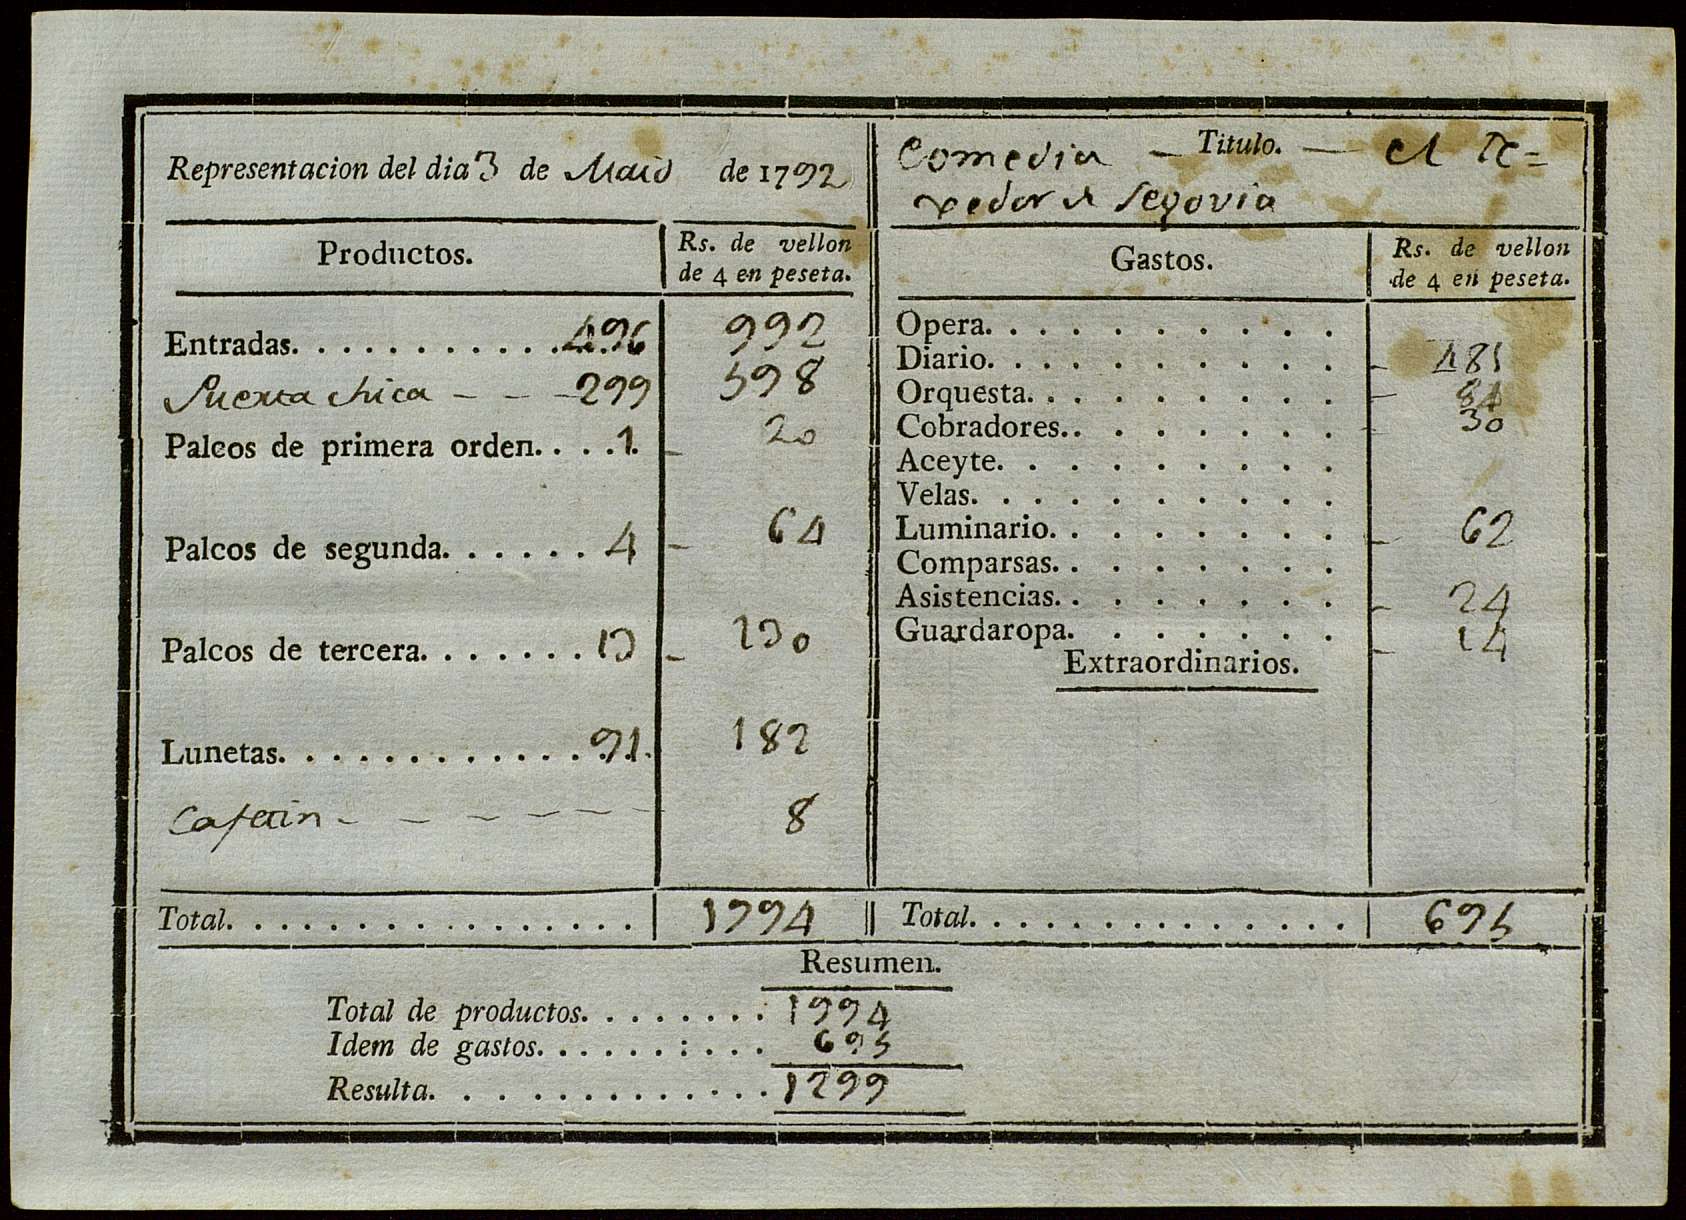 Representacion del dia 3 de Maio de 1792
Comedia — Titulo. — el Te=
xedor de Segovia
Productos. Rs. de vellon
de 4 en peseta.
Entradas. . . . . . . . . . . 496 992
Puerta chica - - - 299 598
Palcos de primera orden. . . . 1. 20
Palcos de segunda. . . . . . 4 64
Palcos de tercera. . . . . . . 13 130
Lunetas. . . . . . . . . . . . 91. 182
Cafetin - - - - - - 8
Total. . . . . . . . . . . . . . . . 1994
Gastos. Rs. de vellon
de 4 en peseta.
Opera. . . . . . . . . .
Diario. . . . . . . . . . 481
Orquesta. . . . . . . . . 84
Cobradores. . . . . . . . 30
Aceyte. . . . . . . . .
Velas. . . . . . . . . .
Luminario. . . . . . . . 62
Comparsas. . . . . . . .
Asistencias. . . . . . . . 24
Guardaropa. . . . . . . 14
Extraordinarios.
Total. . . . . . . . . . . . . . . 695
Resumen.
Total de productos. . . . . . . . 1994
Idem de gastos. . . . . . : . . . 695
Resulta. . . . . . . . . . . . . 1299